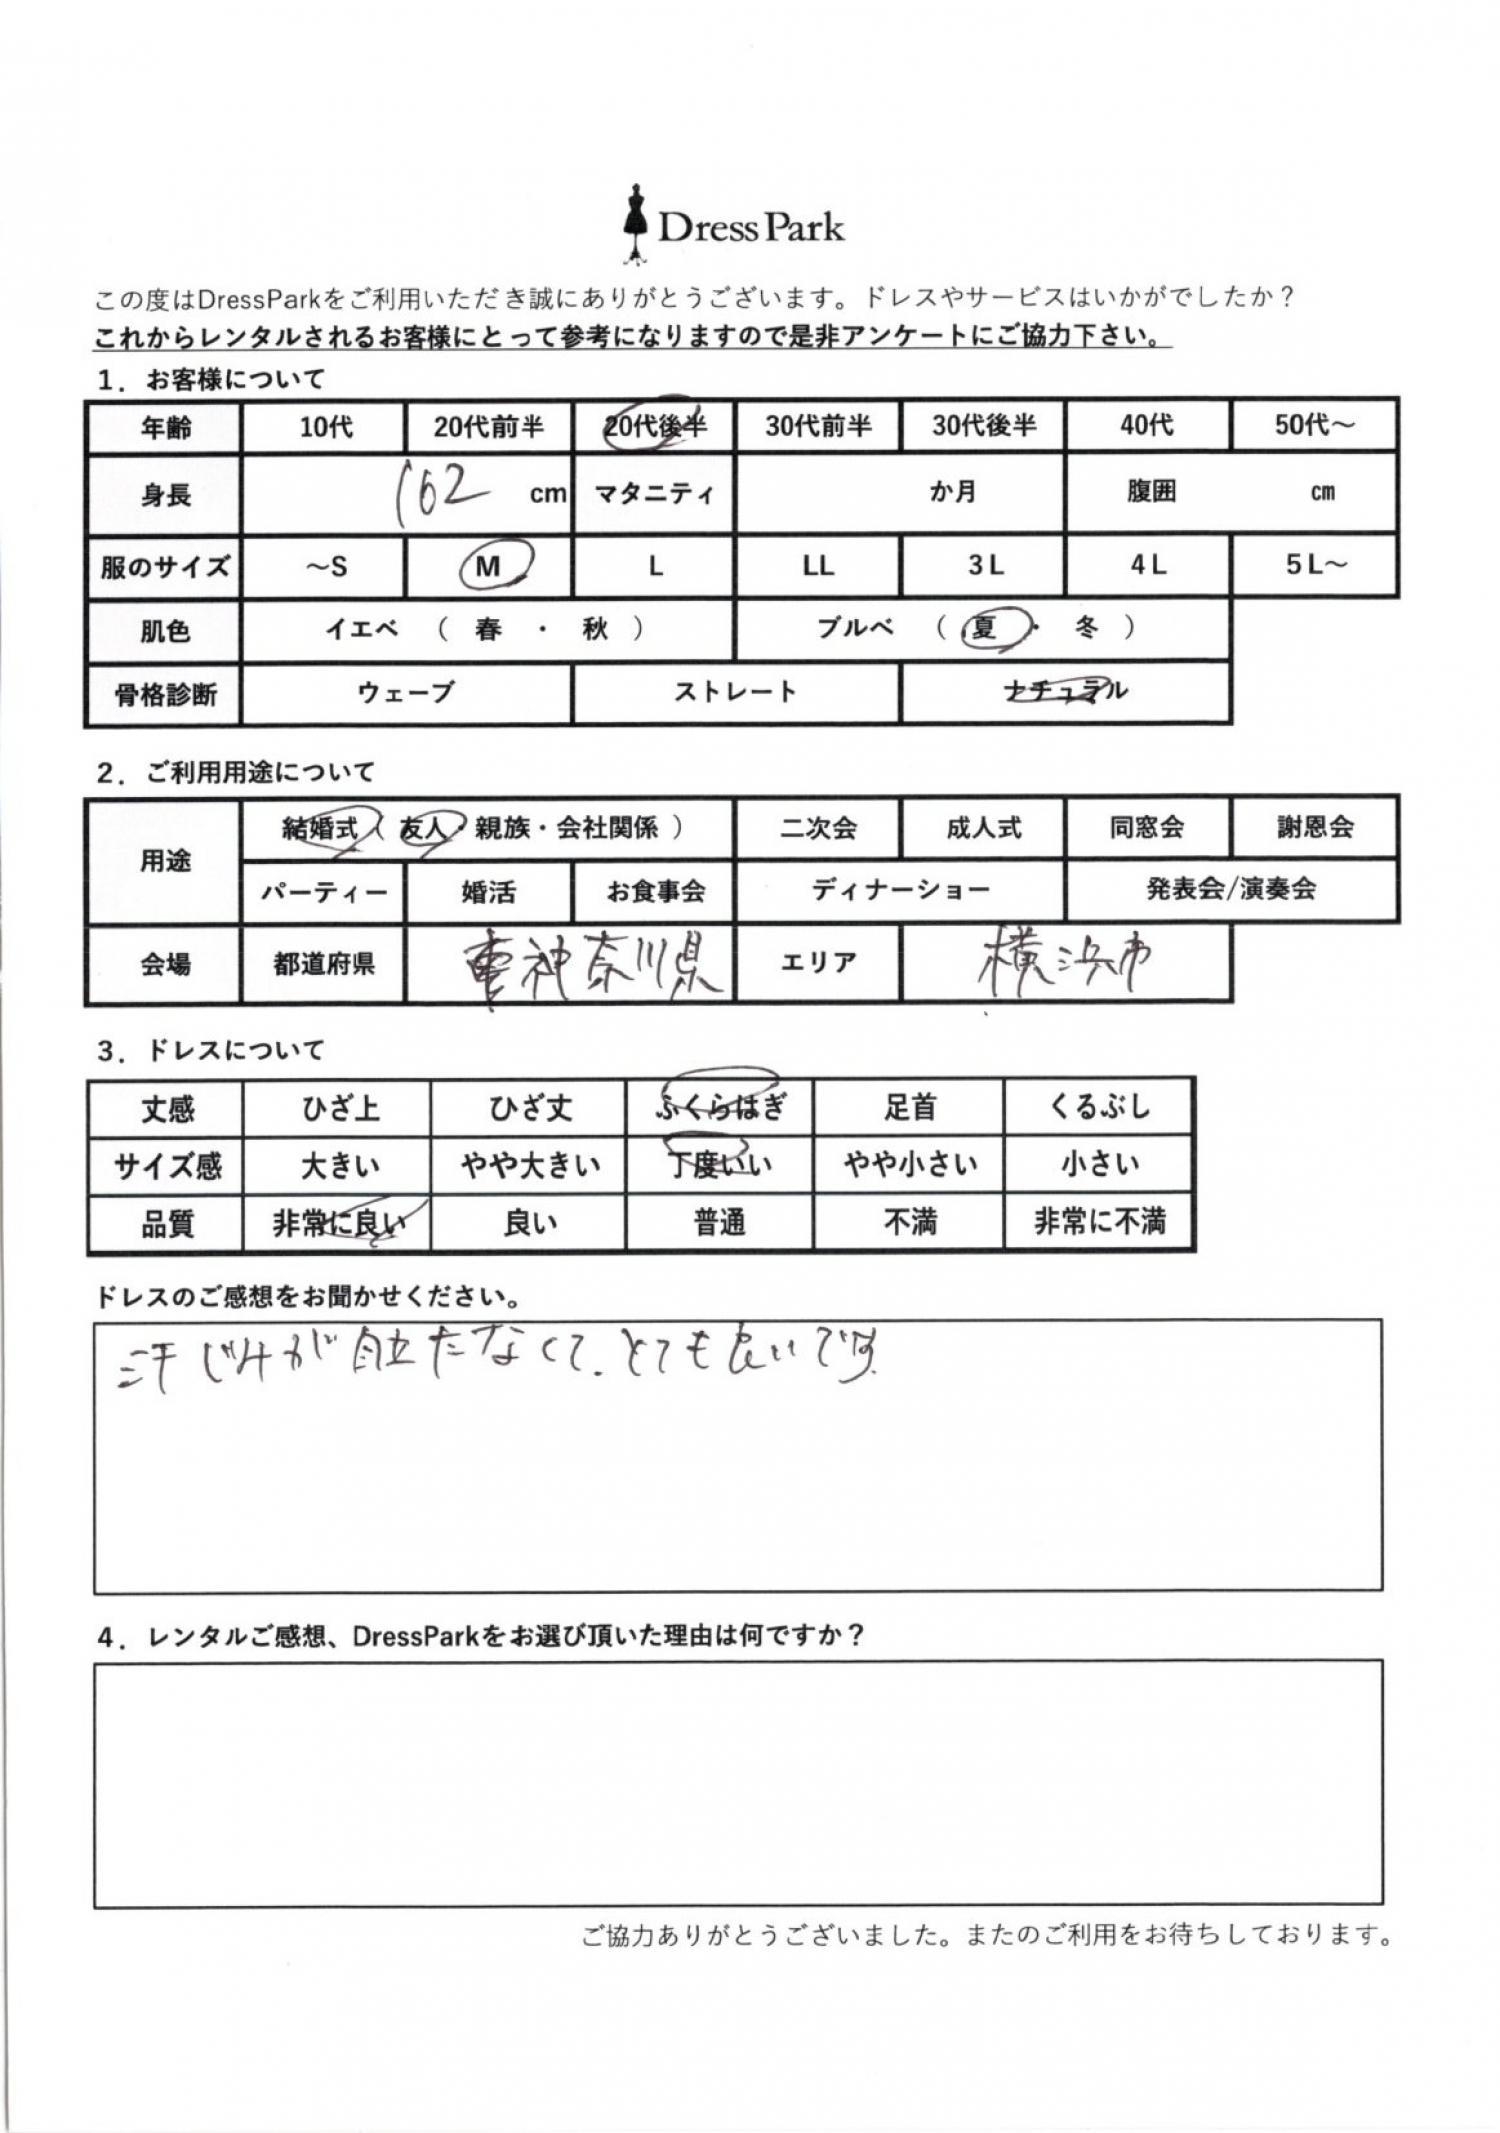 Dress Park
この度はDressParkをご利用いただき誠にありがとうございます。ドレスやサービスはいかがでしたか？
これからレンタルされるお客様にとって参考になりますので是非アンケートにご協力下さい。
1．お客様について
年齢 10代 20代前半 20代後半 30代前半 30代後半 40代 50代～
身長 162 cm マタニティ か月 腹囲 ㎝
服のサイズ ～S M L LL 3L 4L 5L～
肌色 イエベ （ 春 ・ 秋 ） ブルベ （ 夏 ・ 冬 ）
骨格診断 ウェーブ ストレート ナチュラル
2．ご利用用途について
用途 結婚式（ 友人・親族・会社関係 ） 二次会 成人式 同窓会 謝恩会
パーティー 婚活 お食事会 ディナーショー 発表会/演奏会
会場 都道府県 神奈川県 エリア 横浜市
3．ドレスについて
丈感 ひざ上 ひざ丈 ふくらはぎ 足首 くるぶし
サイズ感 大きい やや大きい 丁度いい やや小さい 小さい
品質 非常に良い 良い 普通 不満 非常に不満
ドレスのご感想をお聞かせください。
汗じみが目立たなくて、とても良いです。
4．レンタルご感想、DressParkをお選び頂いた理由は何ですか？
ご協力ありがとうございました。またのご利用をお待ちしております。